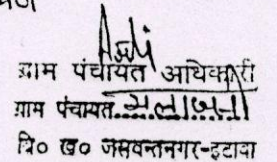 ग्राम पंचायत अधिकारी
ग्राम पंचायत...सलाजनी
वि० ख० जसवन्तनगर-इटावा